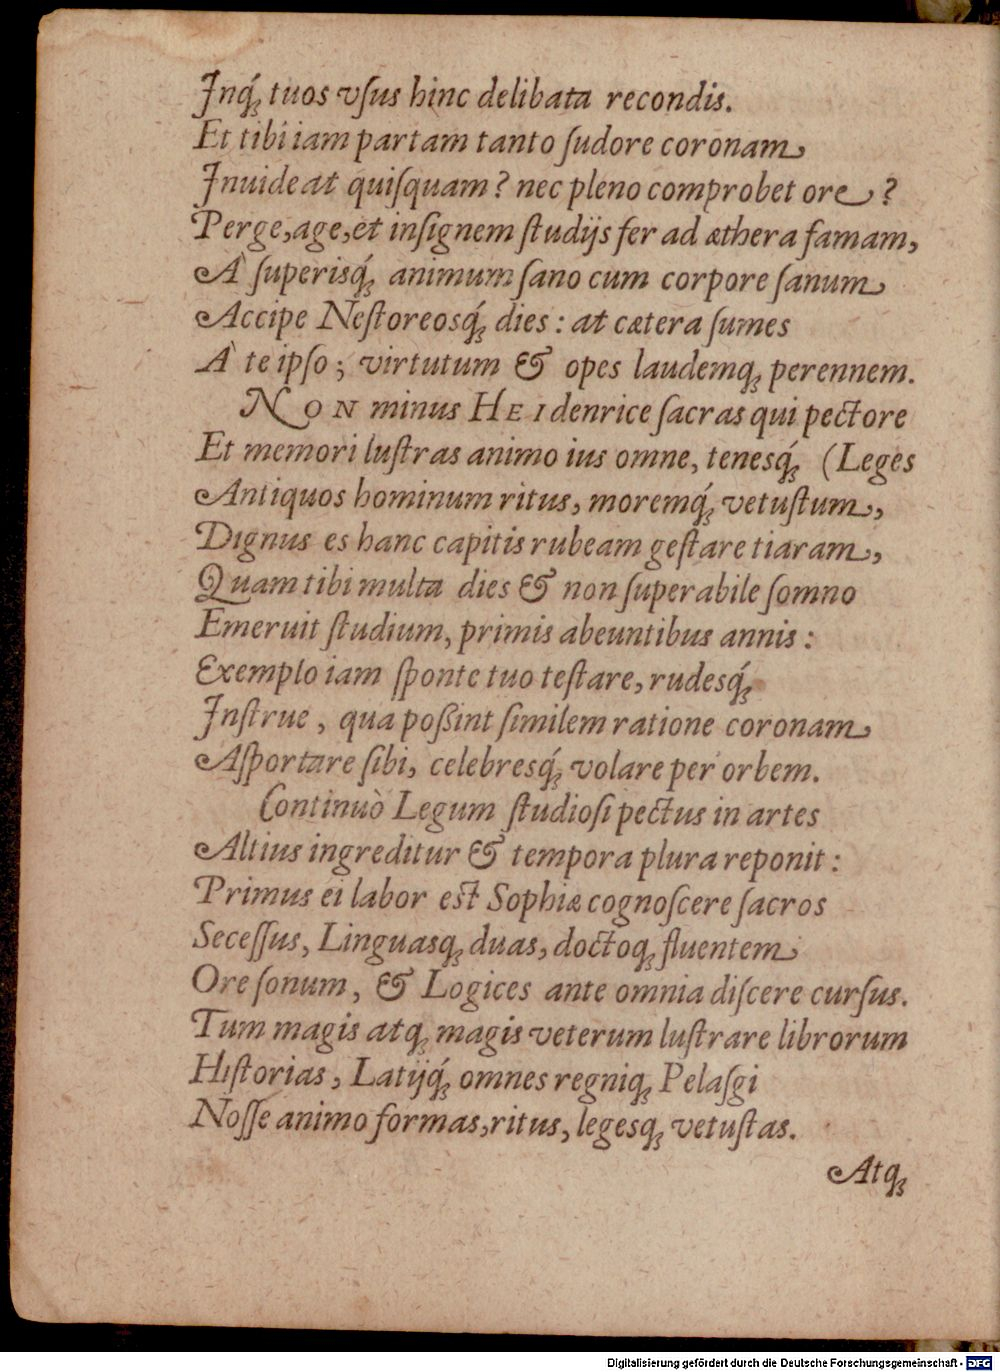 Inq́ꝫ tuos vſus hinc delibata recondis.
Et tibi iam partam tanto ſudore coronam
Inuideat quiſquam? nec pleno comprobet ore?
Perge, age, et inſignem ſtudijs fer ad æthera famam,
À ſuperisq́ꝫ animum ſano cum corpore ſanum
Accipe Neſtoreosq́ꝫ dies: at cætera ſumes
À te ipſo; virtutum & opes laudemqꝫ perennem.
NON minus HEIdenrice ſacras qui pectore
Et memori luſtras animo ius omne, tenesq́ꝫ (Leges
Antiquos hominum ritus, moremq́ꝫ vetuſtum,
Dignus es hanc capitis rubeam geſtare tiaram,
Quam tibi multa dies & non ſuperabile ſomno
Emeruit ſtudium, primis abeuntibus annis:
Exemplo iam ſponte tuo teſtare, rudesq́ꝫ
Inſtrue, qua poßint ſimilem ratione coronam
Aſportare ſibi, celebresq́ꝫ volare per orbem.
Continuò Legum ſtudioſi pectus in artes
Altius ingreditur & tempora plura reponit:
Primus ei labor est Sophiæ cognoſcere ſacros
Seceſſus, Linguasqꝫ duas, doctoqꝫ fluentem
Ore ſonum, & Logices ante omnia diſcere curſus.
Tum magis atqꝫ magis veterum luſtrare librorum
Hiſtorias, Latijq́ꝫ omnes regniqꝫ Pelaſgi
Noſſe animo formas, ritus, legesqꝫ vetuſtas.
Atqꝫ
Digitalisierung gefördert durch die Deutsche Forschungsgemeinschaft - DFG